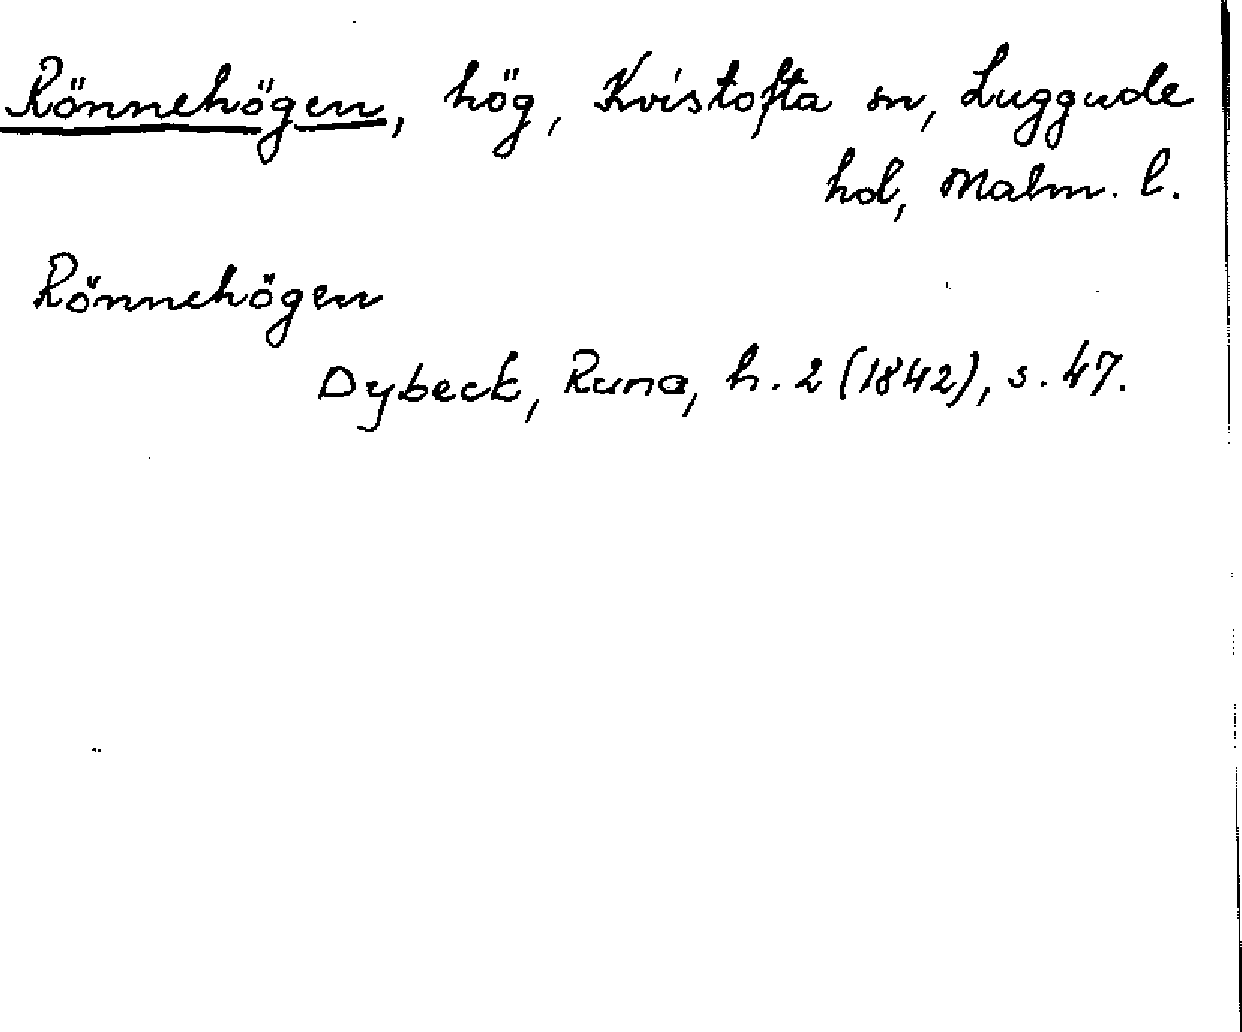 Rönnehögen, hög, Kvistofta sn, Luggude
hd, Malm. l.
Rönnehögen
Dybeck, Runa, h. 2 (1842), s. 47.